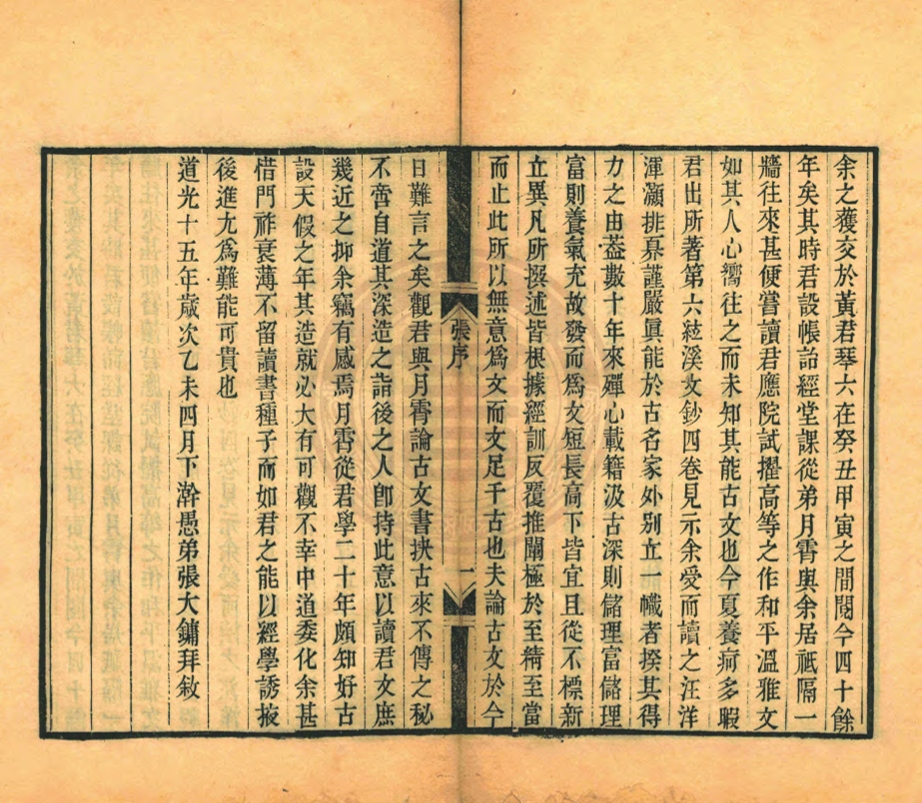 余之獲交於黃君琴六在癸丑甲寅之間閱今四十餘
年矣其時君設帳詒經堂課從弟月霄與余居祇隔一
牆往來甚便嘗讀君應院試擢高等之作和平溫雅文
如其人心嚮往之而未知其能古文也今夏養疴多暇
君出所著第六絃溪文鈔四卷見示余愛而讀之汪洋
渾灝排奡謹嚴眞能於古名家外别立一幟者揆其得
力之由葢數十年來殫心載籍汲古深則儲理富儲理
富則養氣充故發而爲文短長高下皆宜且從不標新
立異凡所撰述皆根據經訓反覆推闡極於至精至當
而止此所以無意爲文而文足千古也夫論古文於今
張序
一
日難言之矣觀君與月霄論古文書抉古來不傳之秘
不啻自道其深造之詣後之人卽持此意以讀君文庶
幾近之抑余竊有感焉月霄從君學二十年頗知好古
設天假之年其造就必大有可觀不幸中道委化余甚
惜門祚衰薄不留讀書種子而如君之能以經學誘掖
後進尤爲難能可貴也
道光十五年歲次乙未四月下澣愚弟張大鏞拜敘